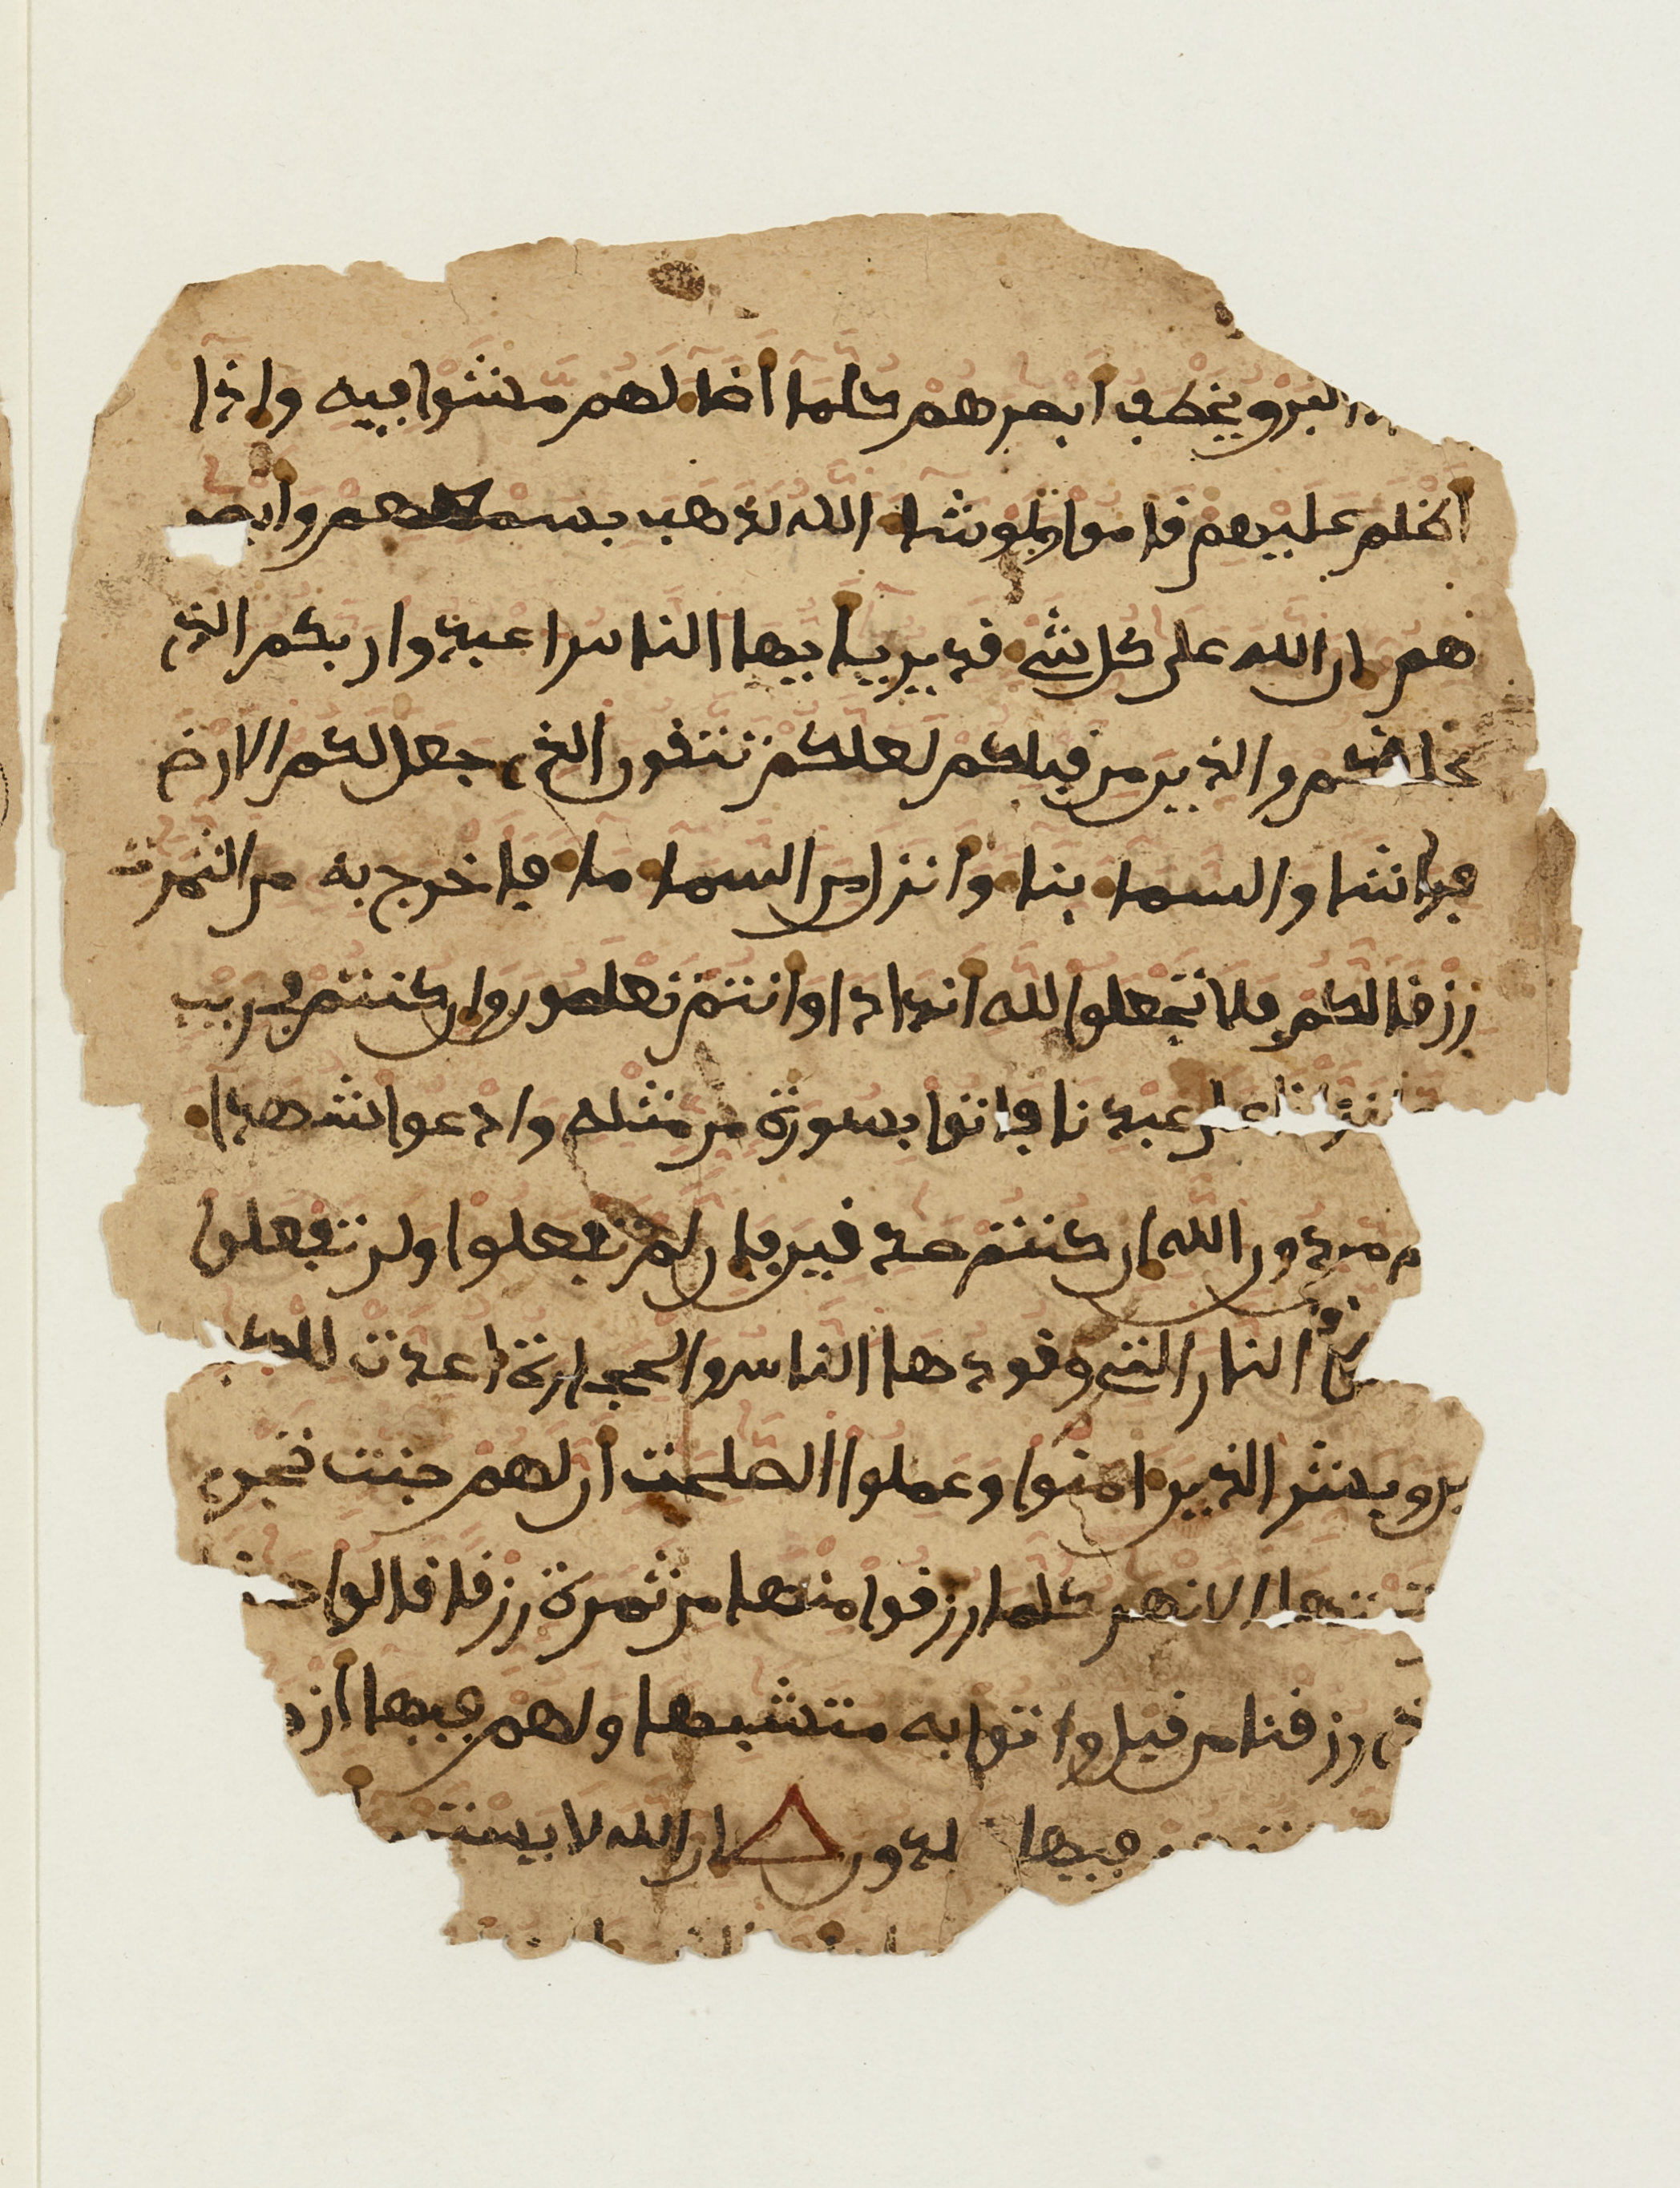 البرق يخطف ابصرهم كلما اضا لهم مشوا فيه واذا
اظلم عليهم قاموا ولو شا الله لذهب بسمعهم وابصر
هم ان الله على كل شي قدير يايها الناس اعبدوا ربكم الذي
خلقكم والذين من قبلكم لعلكم تتقون الذي جعل لكم الارض
فراشا والسما بنا وانزل من السما ما فاخرج به من الثمرت
رزقا لكم فلا تجعلوا لله اندادا وانتم تعلمون وان كنتم في ريب
نزلنا على عبدنا فاتوا بسورة من مثله وادعوا شهدا
كم من دون الله ان كنتم صدقين فان لم تفعلوا ولن تفعلوا
النار التي وقودها الناس والحجارة اعدت للكف
رين وبشر الذين امنوا وعملوا الصلحت ان لهم جنت تجري
من تحتها الانهر كلما رزقوا منها من ثمرة رزقا قالوا هذا
الذي رزقنا من قبل واتوا به متشبها ولهم فيها ازو
فيها خلدون ان الله لا يستح